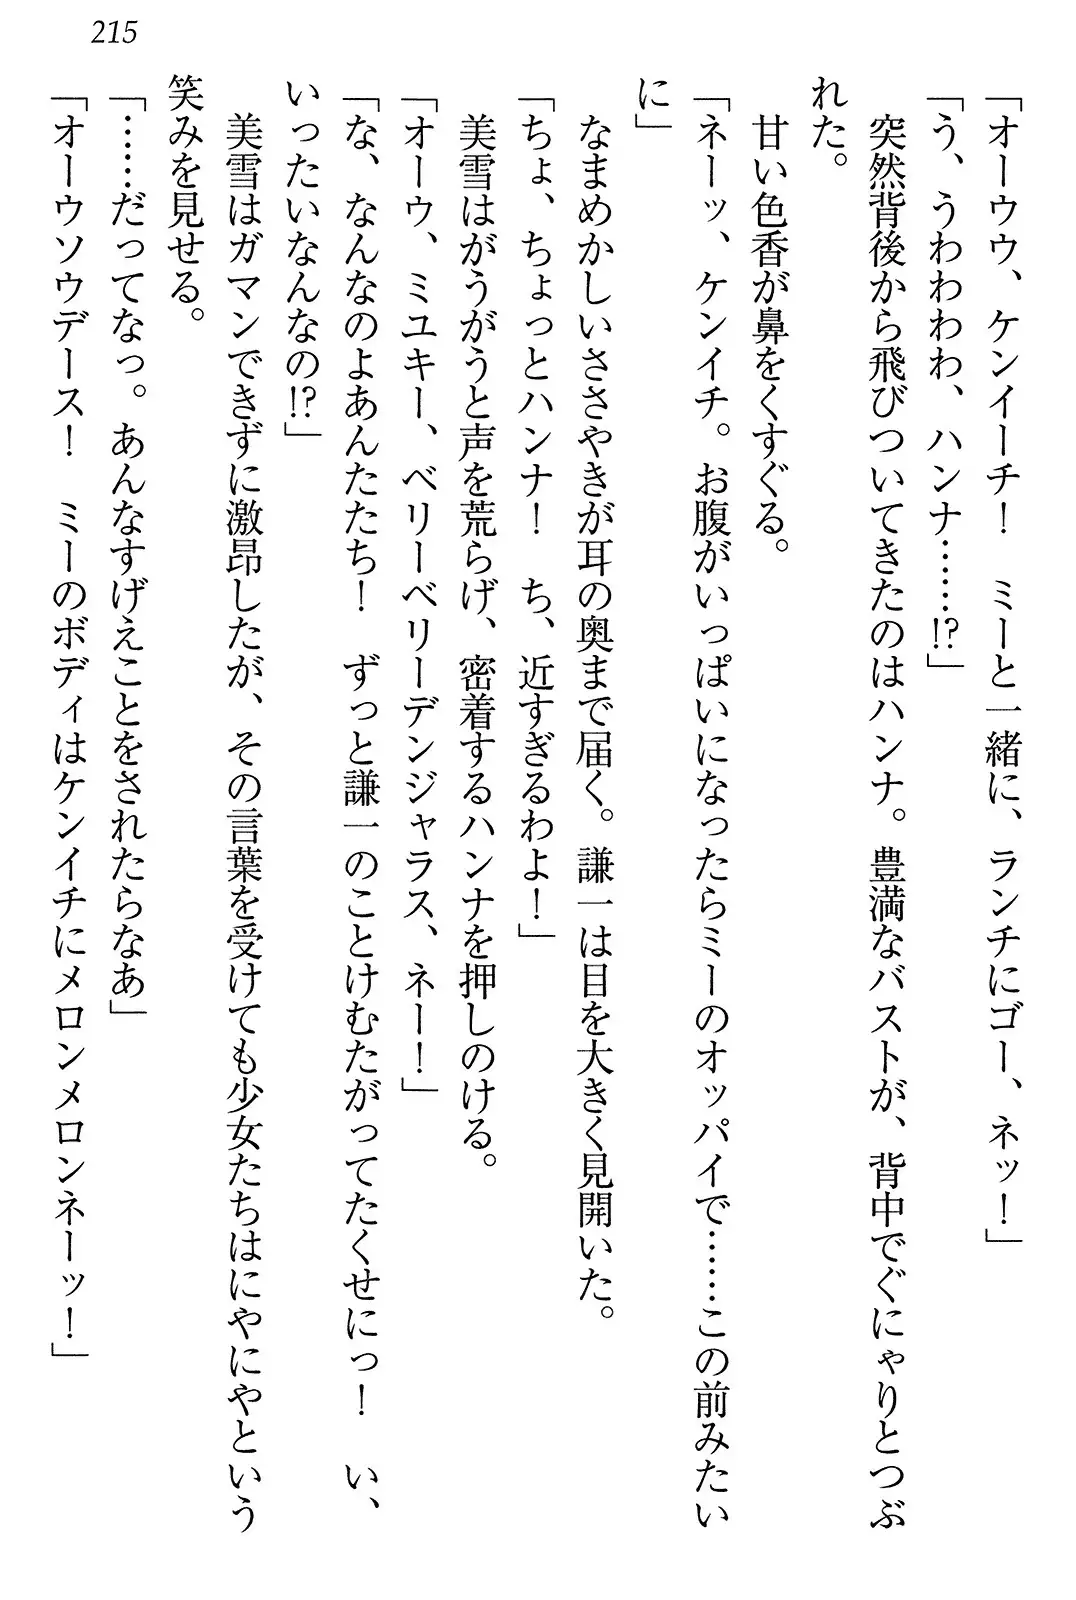 215
「オーウゥ、ケンイーチ！　ミーと一緒に、ランチにゴー、ネッ！」
「う、うわわわわ、ハンナ……!?」
　突然背後から飛びついてきたのはハンナ。豊満なバストが、背中でぐにゃりとつぶ
れた。
　甘い色香が鼻をくすぐる。
「ネーッ、ケンイチ。お腹がいっぱいになったらミーのオッパイで……この前みたい
に」
　なまめかしいささやきが耳の奥まで届く。謙一は目を大きく見開いた。
「ちょ、ちょっとハンナ！　ち、近すぎるわよ！」
　美雪はがうがうと声を荒らげ、密着するハンナを押しのける。
「オーウ、ミユキー、ベリーベリーデンジャラス、ネー！」
「な、なんなのよあんたたち！　ずっと謙一のことけむたがってたくせにっ！　い、
いったいなんなの!?」
　美雪はガマンできずに激昂したが、その言葉を受けても少女たちはにやにやという
笑みを見せる。
「……だってなっ。あんなすげえことをされたらなあ」
「オーウソウデース！　ミーのボディはケンイチにメロンメロンネーッ！」